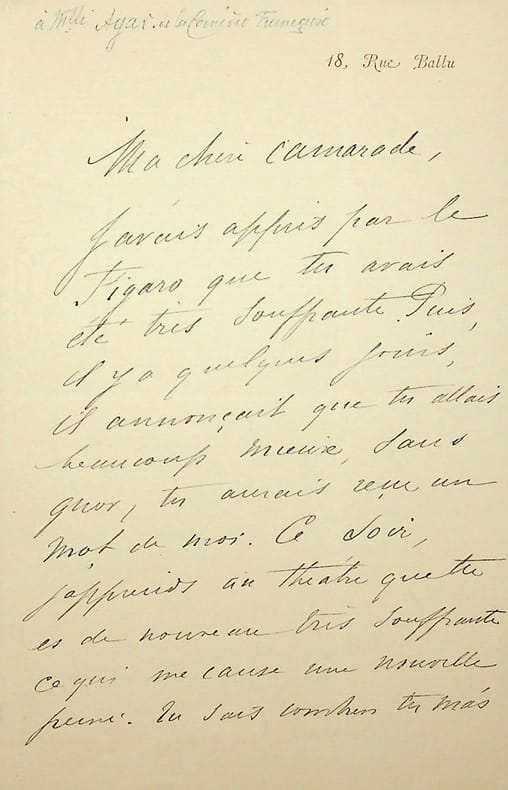 à Mlle Agar de la Comédie Française
18, Rue Ballu
Ma chère camarade,
J'avais appris par le
Figaro que tu avais
été très souffrante Puis,
il y a quelques jours,
il annonçait que tu allais
beaucoup mieux, sans
quoi, tu aurais reçu un
mot de moi. Ce soir,
j'apprends au théâtre que tu
es de nouveau très souffrante
ce qui me cause une nouvelle
peine. Tu sais combien tu m'as